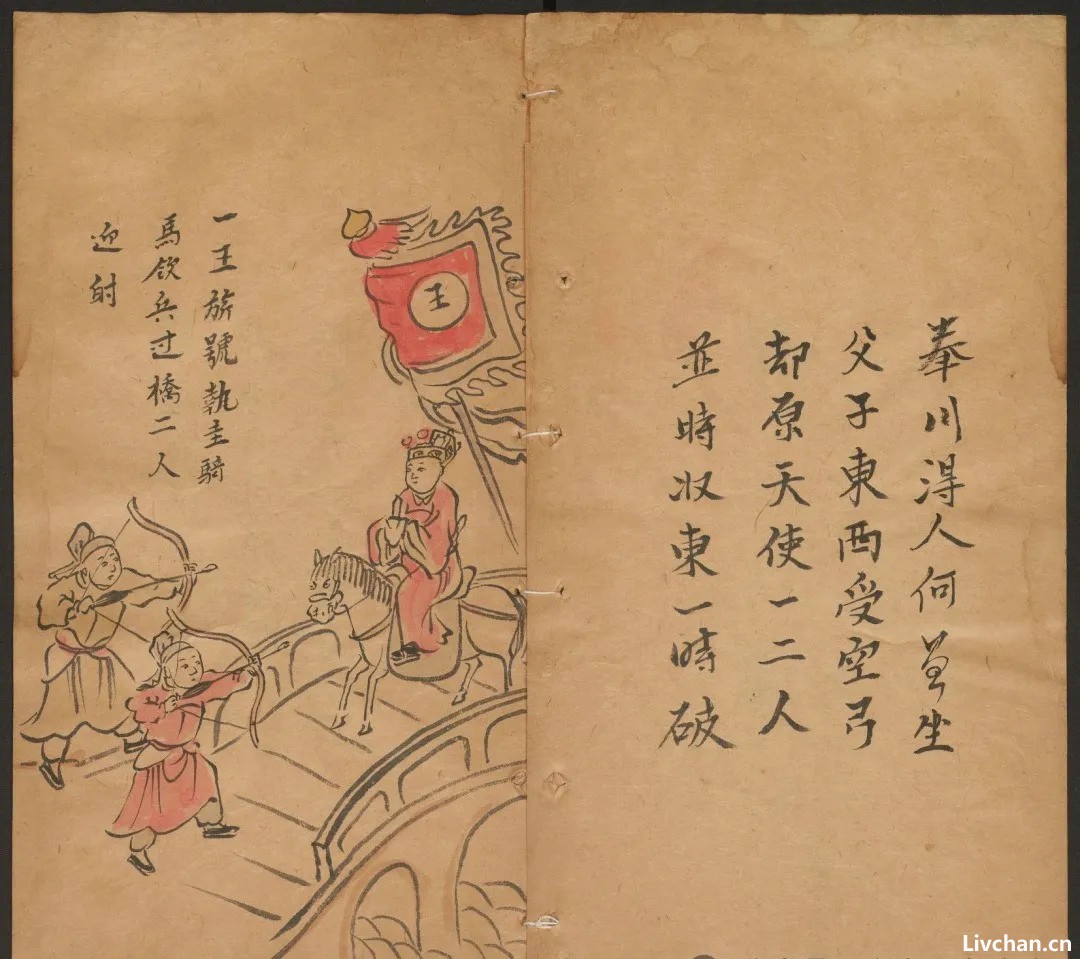 川淂人何坐
父子東西受空弓
却原天使一二人
並時収東一時破
王
一王旂號執圭騎
馬領兵过橋二人
迎射
Livchan.cn